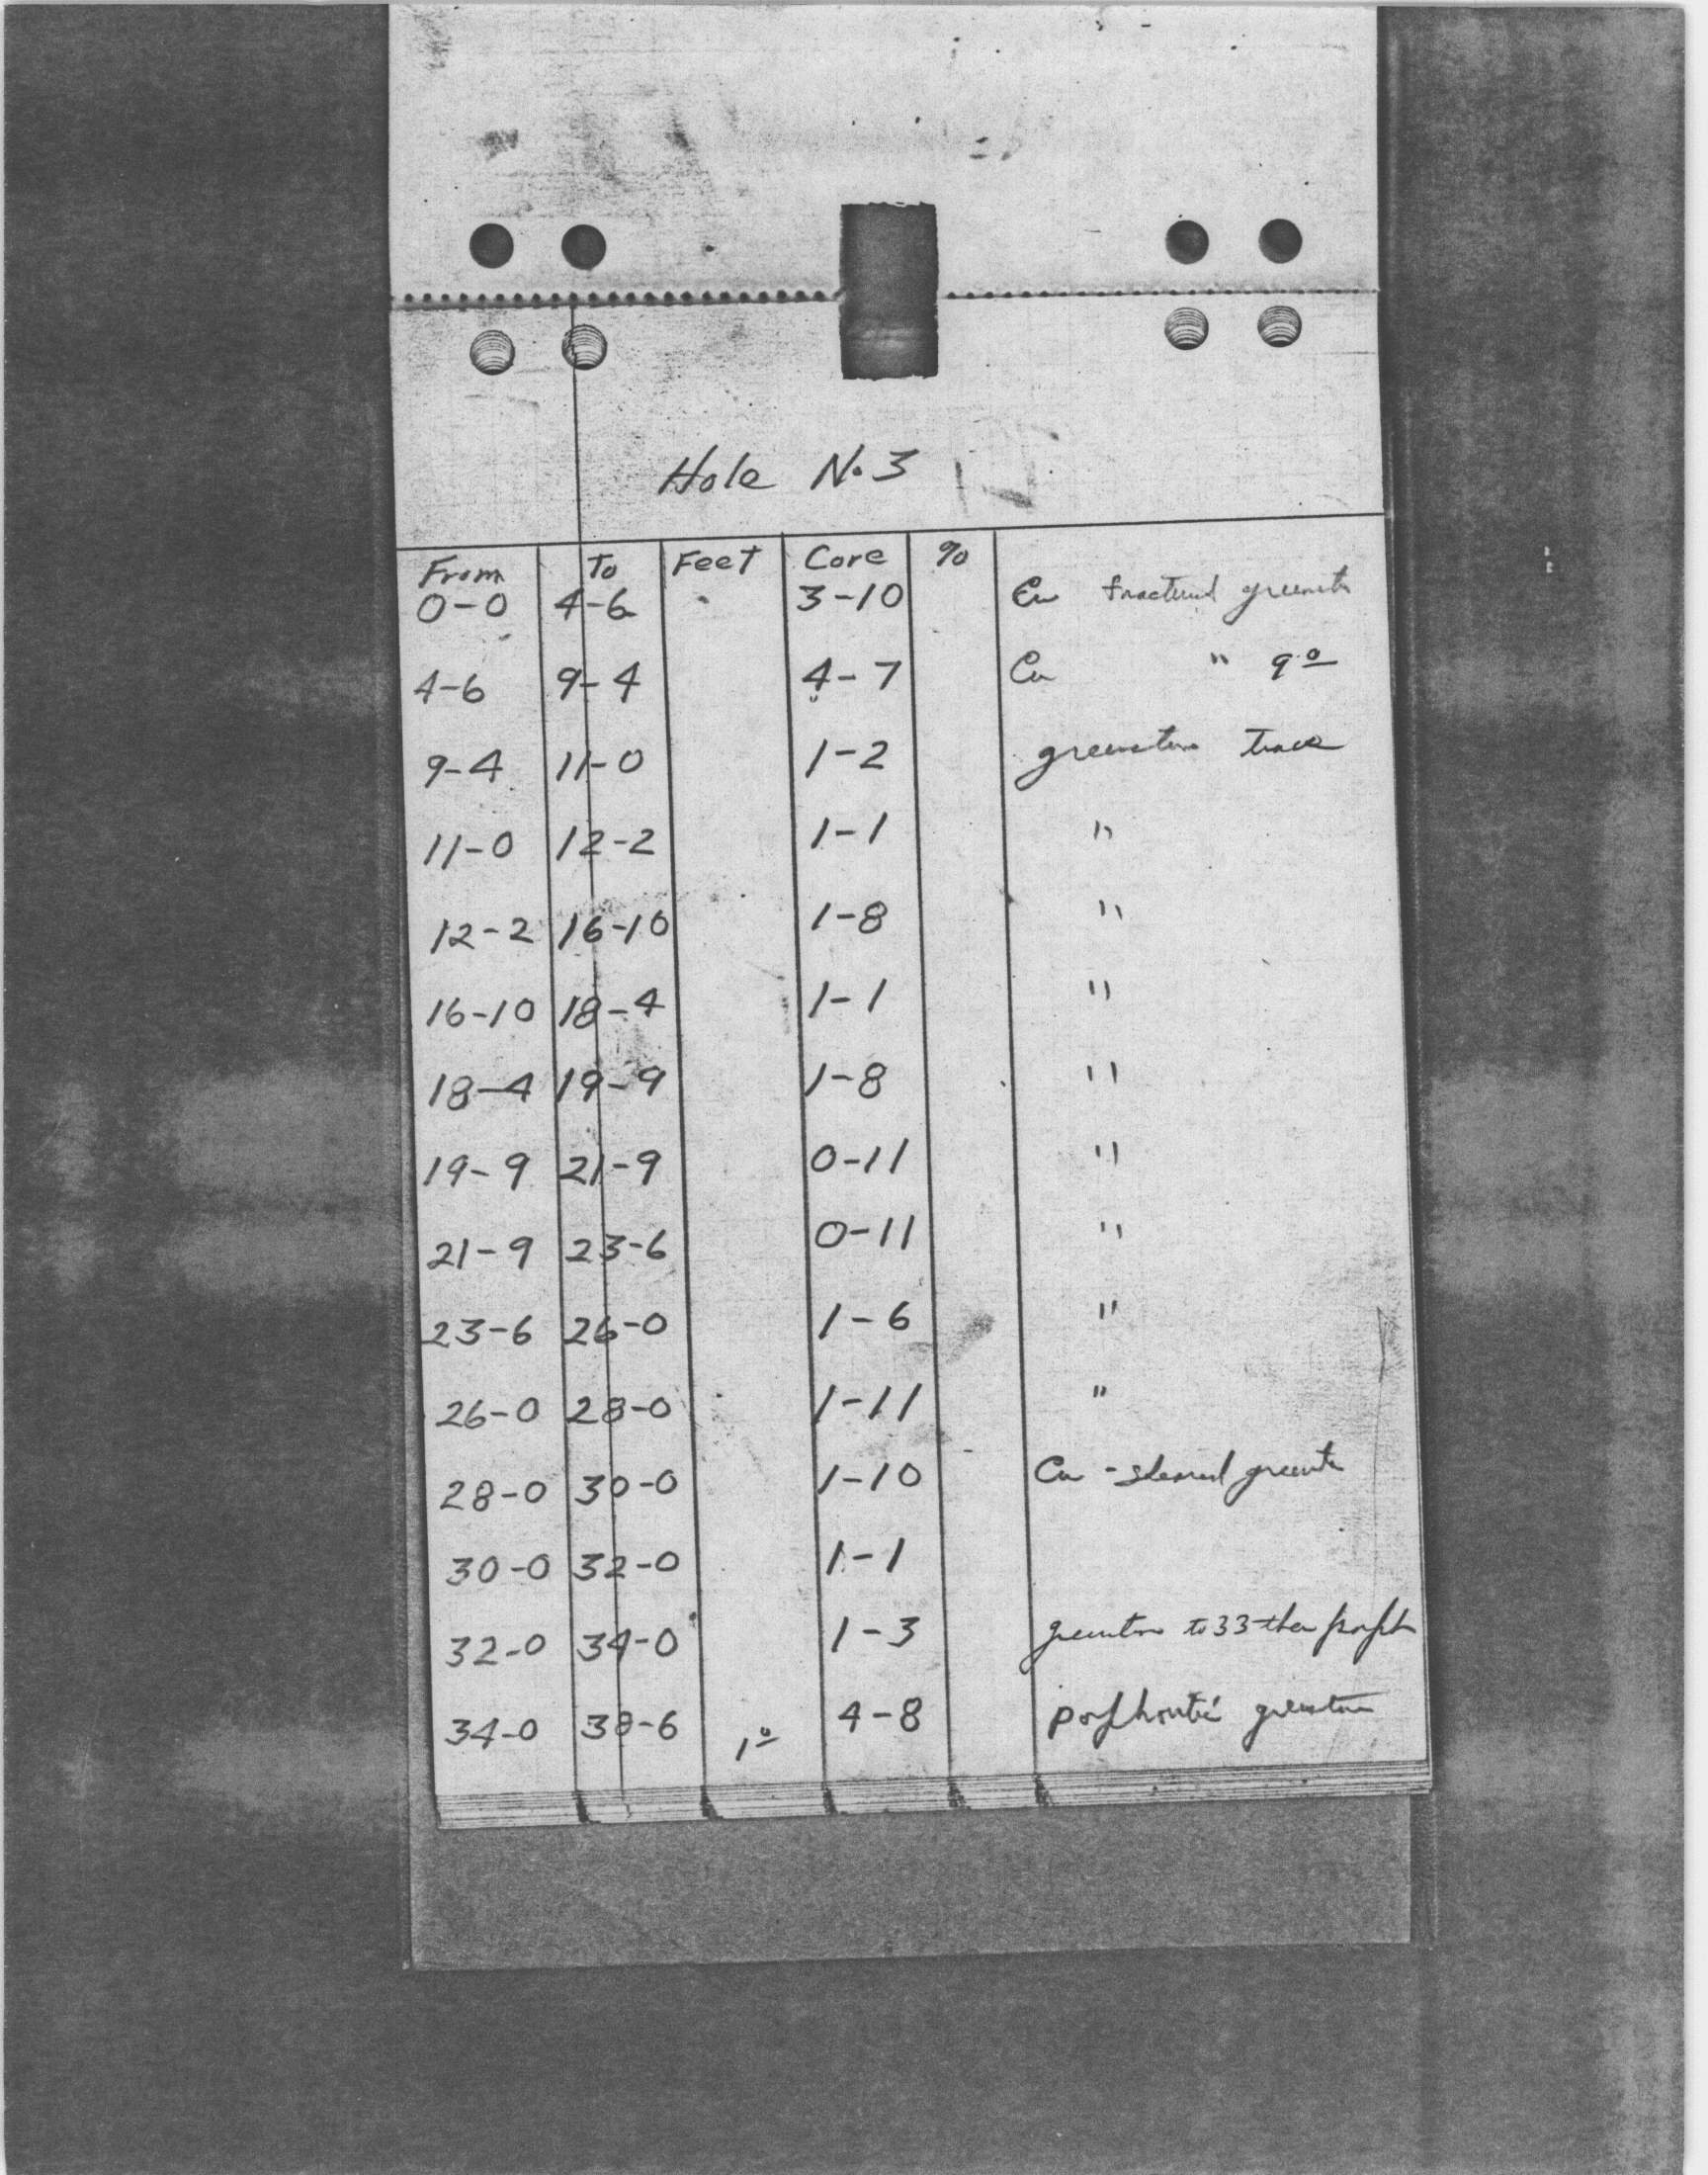 Hole No. 3
From To Feet Core %
0-0 4-6 3-10 Cu fractured greenst
4-6 9-4 4-7 Cu " 9º
9-4 11-0 1-2 greenstone trace
11-0 12-2 1-1 "
12-2 16-10 1-8 "
16-10 18-4 1-1 "
18-4 19-9 1-8 "
19-9 21-9 0-11 "
21-9 23-6 0-11 "
23-6 26-0 1-6 "
26-0 28-0 1-11 "
28-0 30-0 1-10 Cu - sheared
30-0 32-0 1-1
32-0 34-0 1-3 to 33 then
34-0 38-6 1º 4-8 greenstone